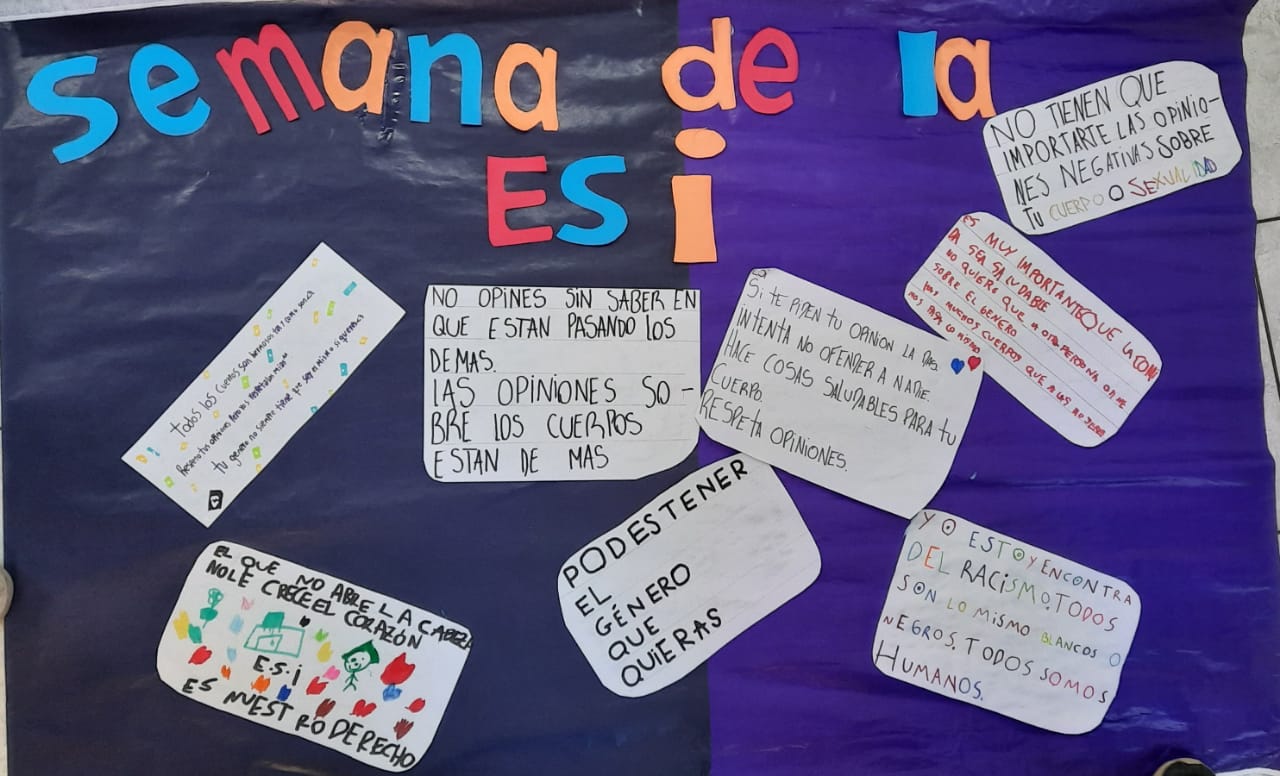 semana de la
ESi
NO TIENEN QUE
IMPORTARTE LAS OPINIO-
NES NEGATIVAS SOBRE
TU CUERPO O SEXUALIDAD
ES MUY IMPORTANTE QUE LA COMI
DA SEA SALUDABLE
NO QUIERO QUE A OTRA PERSONA OPINE
SOBRE EL GENERO
HAY MUCHOS CUERPOS QUE A LAS MUJERES
NOS PASA LO MISMO
todos los cuerpos son hermosos tal y como son
Preservo tus opiniones Pero los respetaban mias
tu genero no siempre tiene que ser el mismo si queres
NO OPINES SIN SABER EN
QUE ESTAN PASANDO LOS
DEMAS.
LAS OPINIONES SO-
BRE LOS CUERPOS
ESTAN DE MAS
Si TE PIDEN TU OPINION LA DAS.
INTENTA NO OFENDER A NADIE.
HACE COSAS SALUDABLES PARA TU
CUERPO.
RESPETA OPINIONES.
EL QUE NO ABRE LA CABEZA
NO LE CRECE EL CORAZÓN
E.S.i
ES NUESTRO DERECHO
PODES TENER
EL
GÉNERO
QUE
QUIERAS
YO ESTOY ENCONTRA
DEL RACISMO.TODOS
SON LO MISMO BLANCOS O
NEGROS. TODOS SOMOS
HUMANOS.